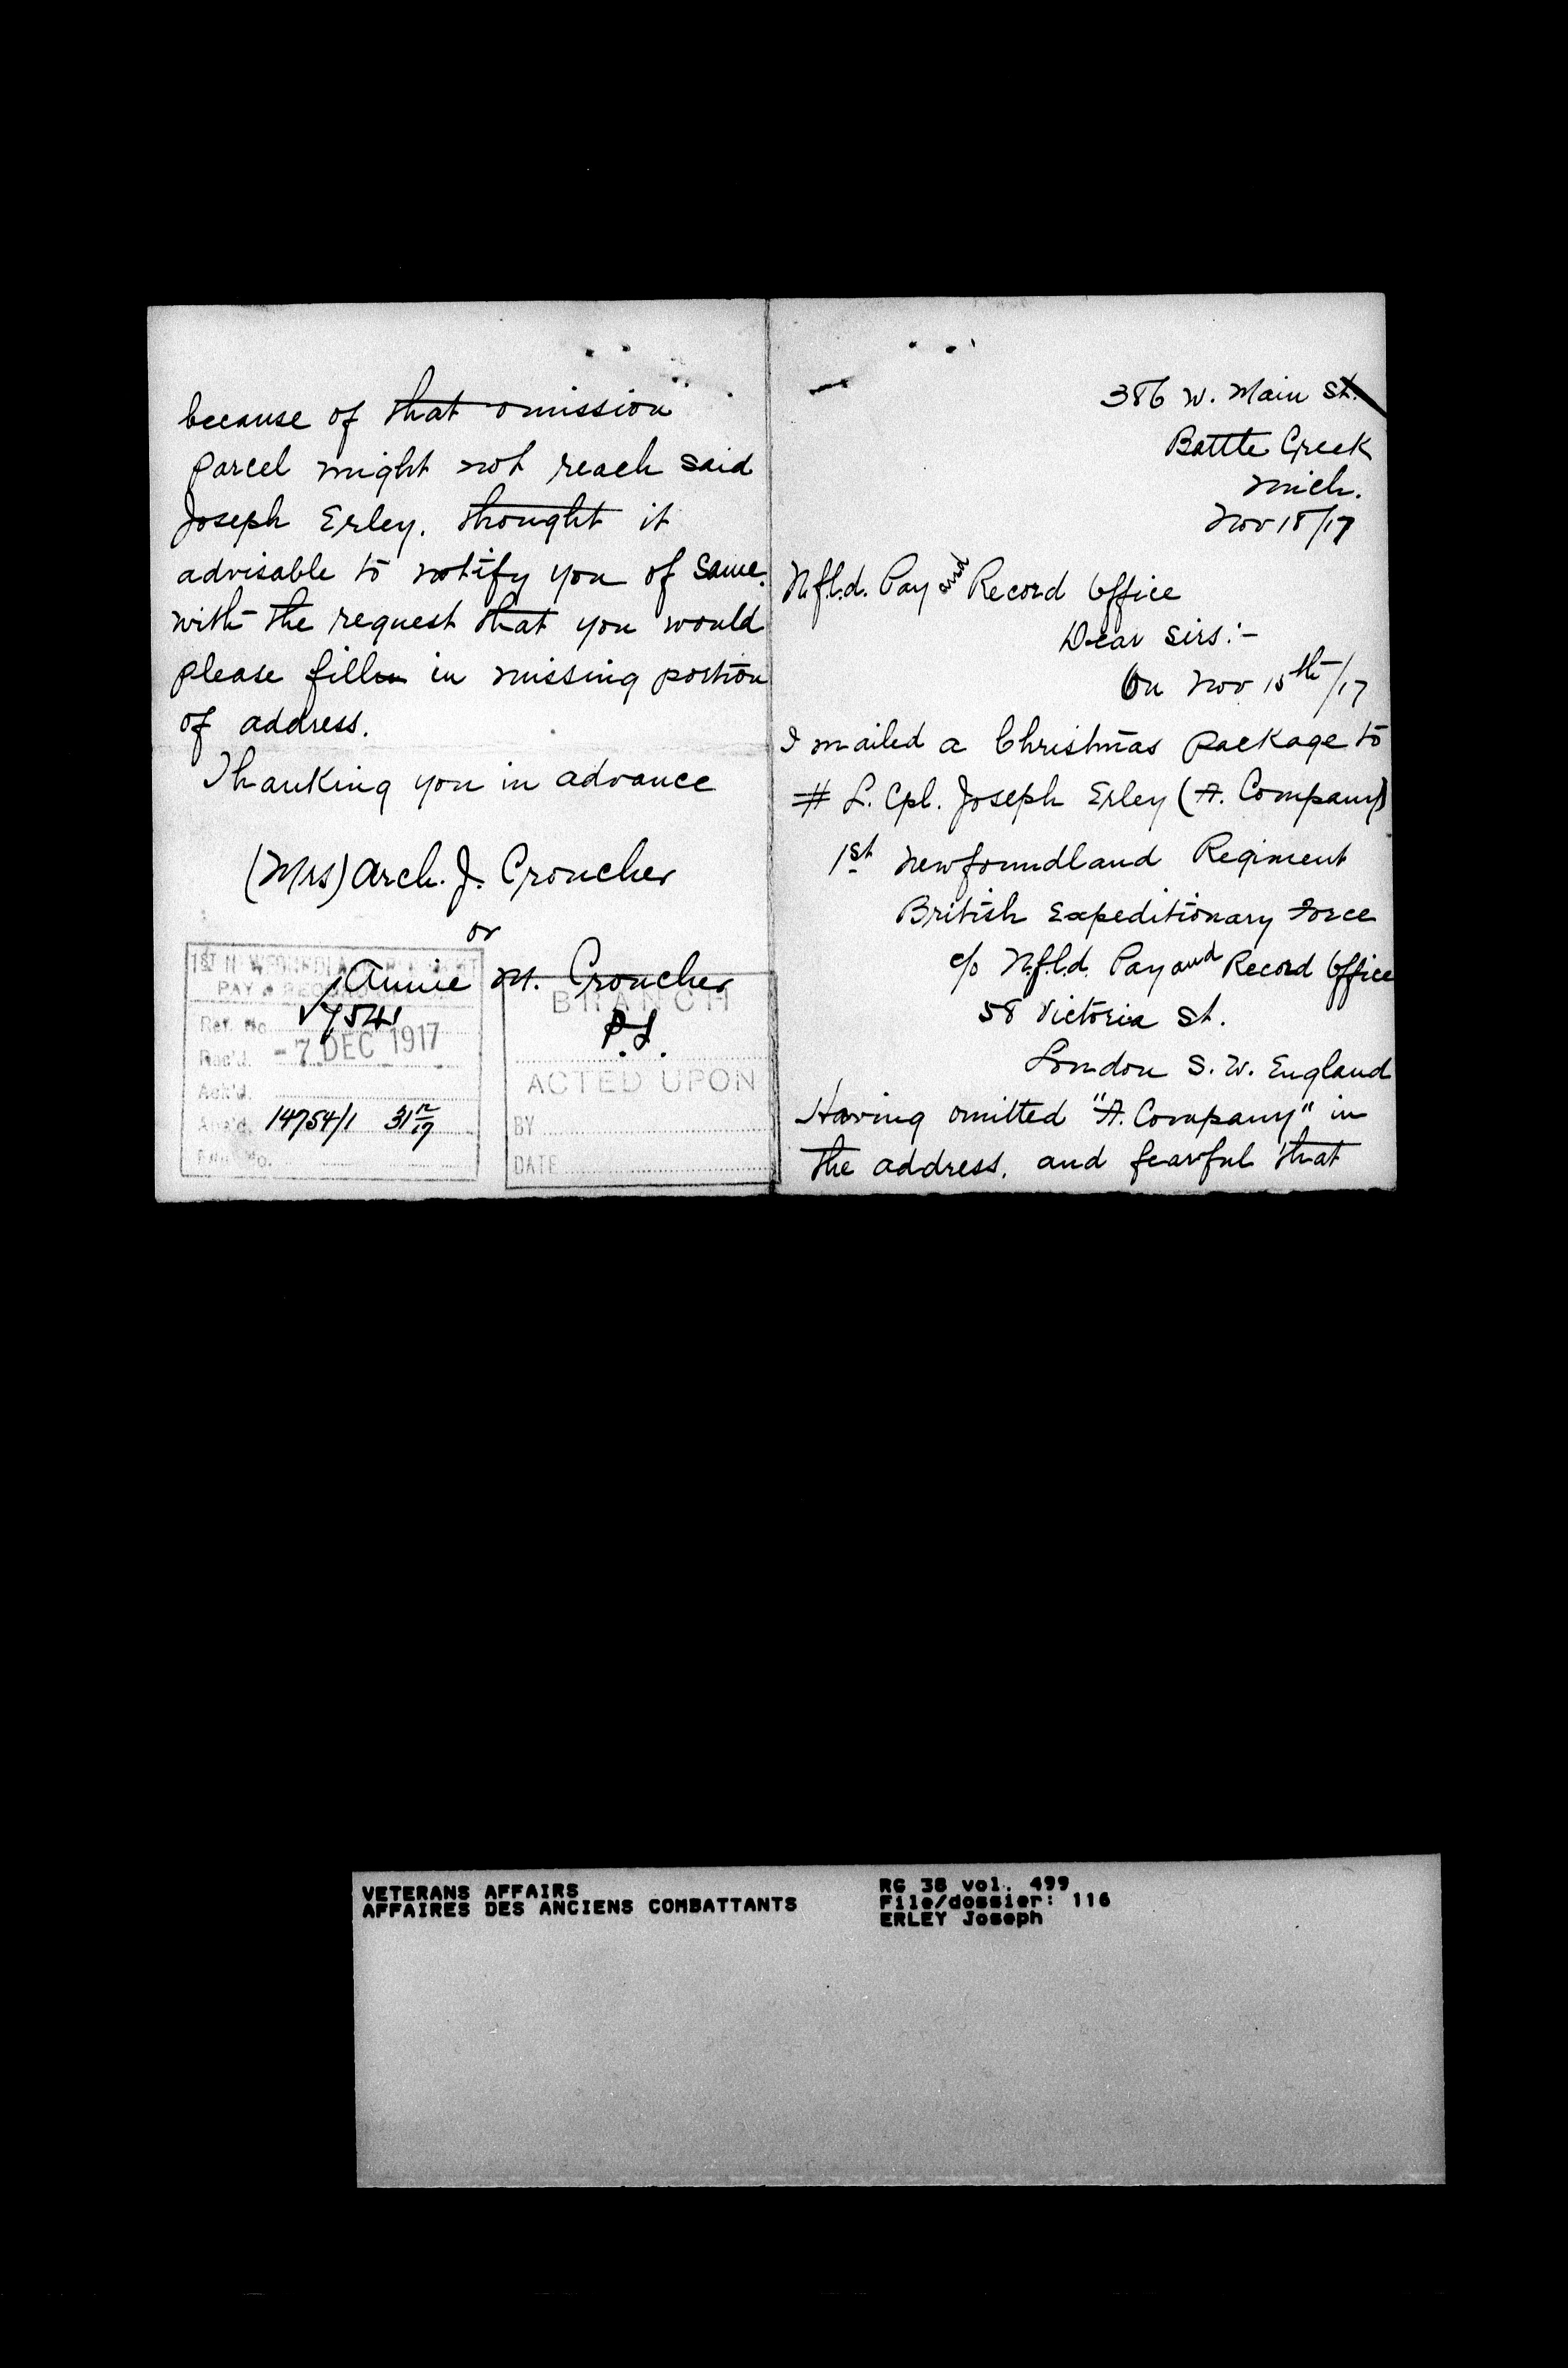 386 W. Main St.
Battle Creek
Mich.
Nov 18/17
Nfld. Pay and Record Office
Dear Sirs:-
On Nov 15th/17
I mailed a Christmas package to
# L. Cpl. Joseph Erley (A. Company)
1st Newfoundland Regiment
British Expeditionary Force
c/o Nfld. Pay and Record Office
58 Victoria St.
London S. W. England
Having omitted "A. Company" in
the address, and fearful that
because of that omission
parcel might not reach said
Joseph Erley. thought it
advisable to notify you of same.
with the request that you would
please fill in missing portion
of address.
Thanking you in advance
(Mrs) Arch. J. Croucher
or
Annie M. Croucher
1ST NEWFOUNDLAND REGIMENT
PAY & RECORD
Ref. No.
Rec'd. - 7 DEC 1917
Ack'd.
Ans'd. 14754/1 31 12/17
File No.
BRANCH
P.S.
ACTED UPON
BY
DATE
VETERANS AFFAIRS
AFFAIRES DES ANCIENS COMBATTANTS
RG 38 vol. 499
File/dossier: 116
ERLEY Joseph